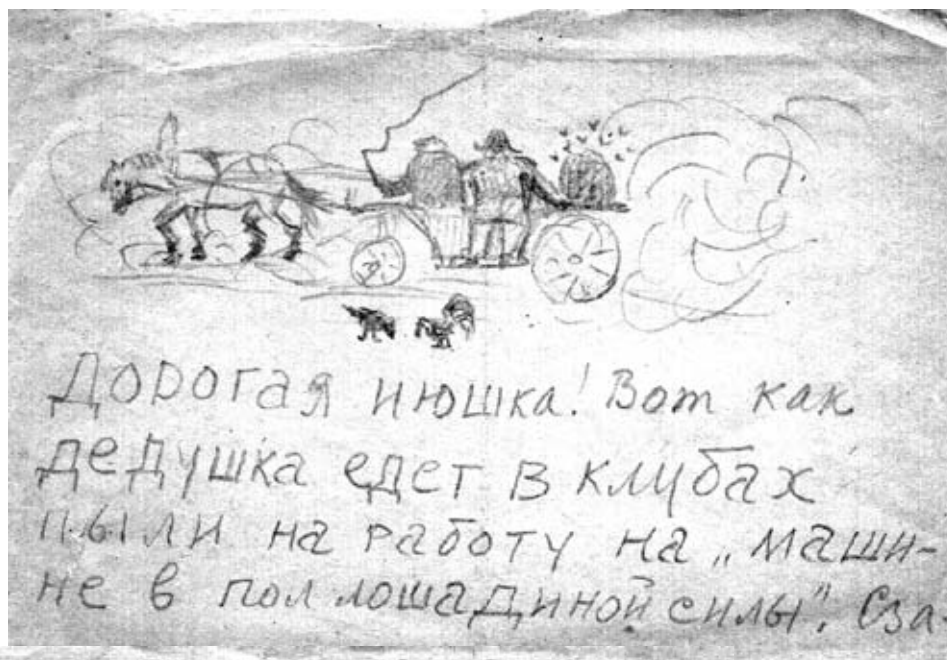 Дорогая Июшка! Вот как
дедушка едет в клубах
пыли на работу на „маши-
не в пол лошадиной силы". Сза-